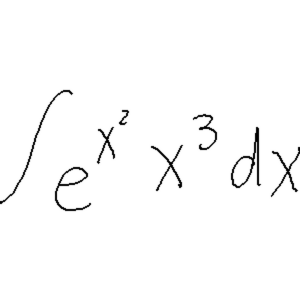 ∫e^{x^2} x^3 dx